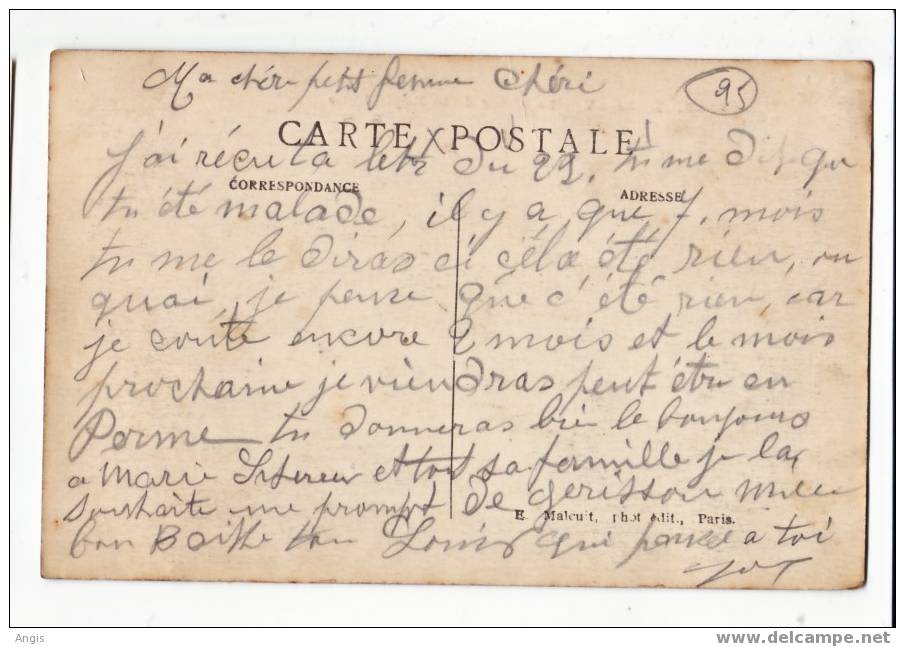 Ma chére petit femme Chéri
95
CARTE POSTALE
J'ai récu ta letr du 22, tu me dit que
CORRESPONDANCE
ADRESSE
tu été malade, il y a que 7, mois
tu me le diras ci céla été rien, ou
quai, je pense que c'été rien, car
je conte encore 2 mois et le mois
prochaine je viendras peut étre en
Perme tu donneras bien le bonjours
a Marie et tout sa famille je la
souhaite une prompt de gerisson mille
E. Malcuit, phot édit., Paris.
bon ton Louis qui pense a toi
Angis
www.delcampe.net